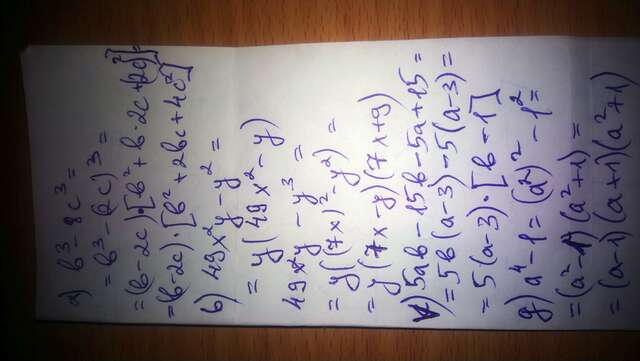 а) b³-8c³=
=b³-(2c)³=
=(b-2c)·[b²+b·2c+(2c)²]=
=(b-2c)·[b²+2bc+4c²]
б) 49x²y-y²=
=y(49x²-y)
49x²y-y³=
=y((7x)²-y²)=
=y(7x-y)(7x+y)
5ab-15b-5a+15=
=5b(a-3)-5(a-3)=
=5(a-3)·[b-1]
g) a⁴-1=(a²)²-1²=
=(a²-1)(a²+1)=
=(a-1)(a+1)(a²+1)